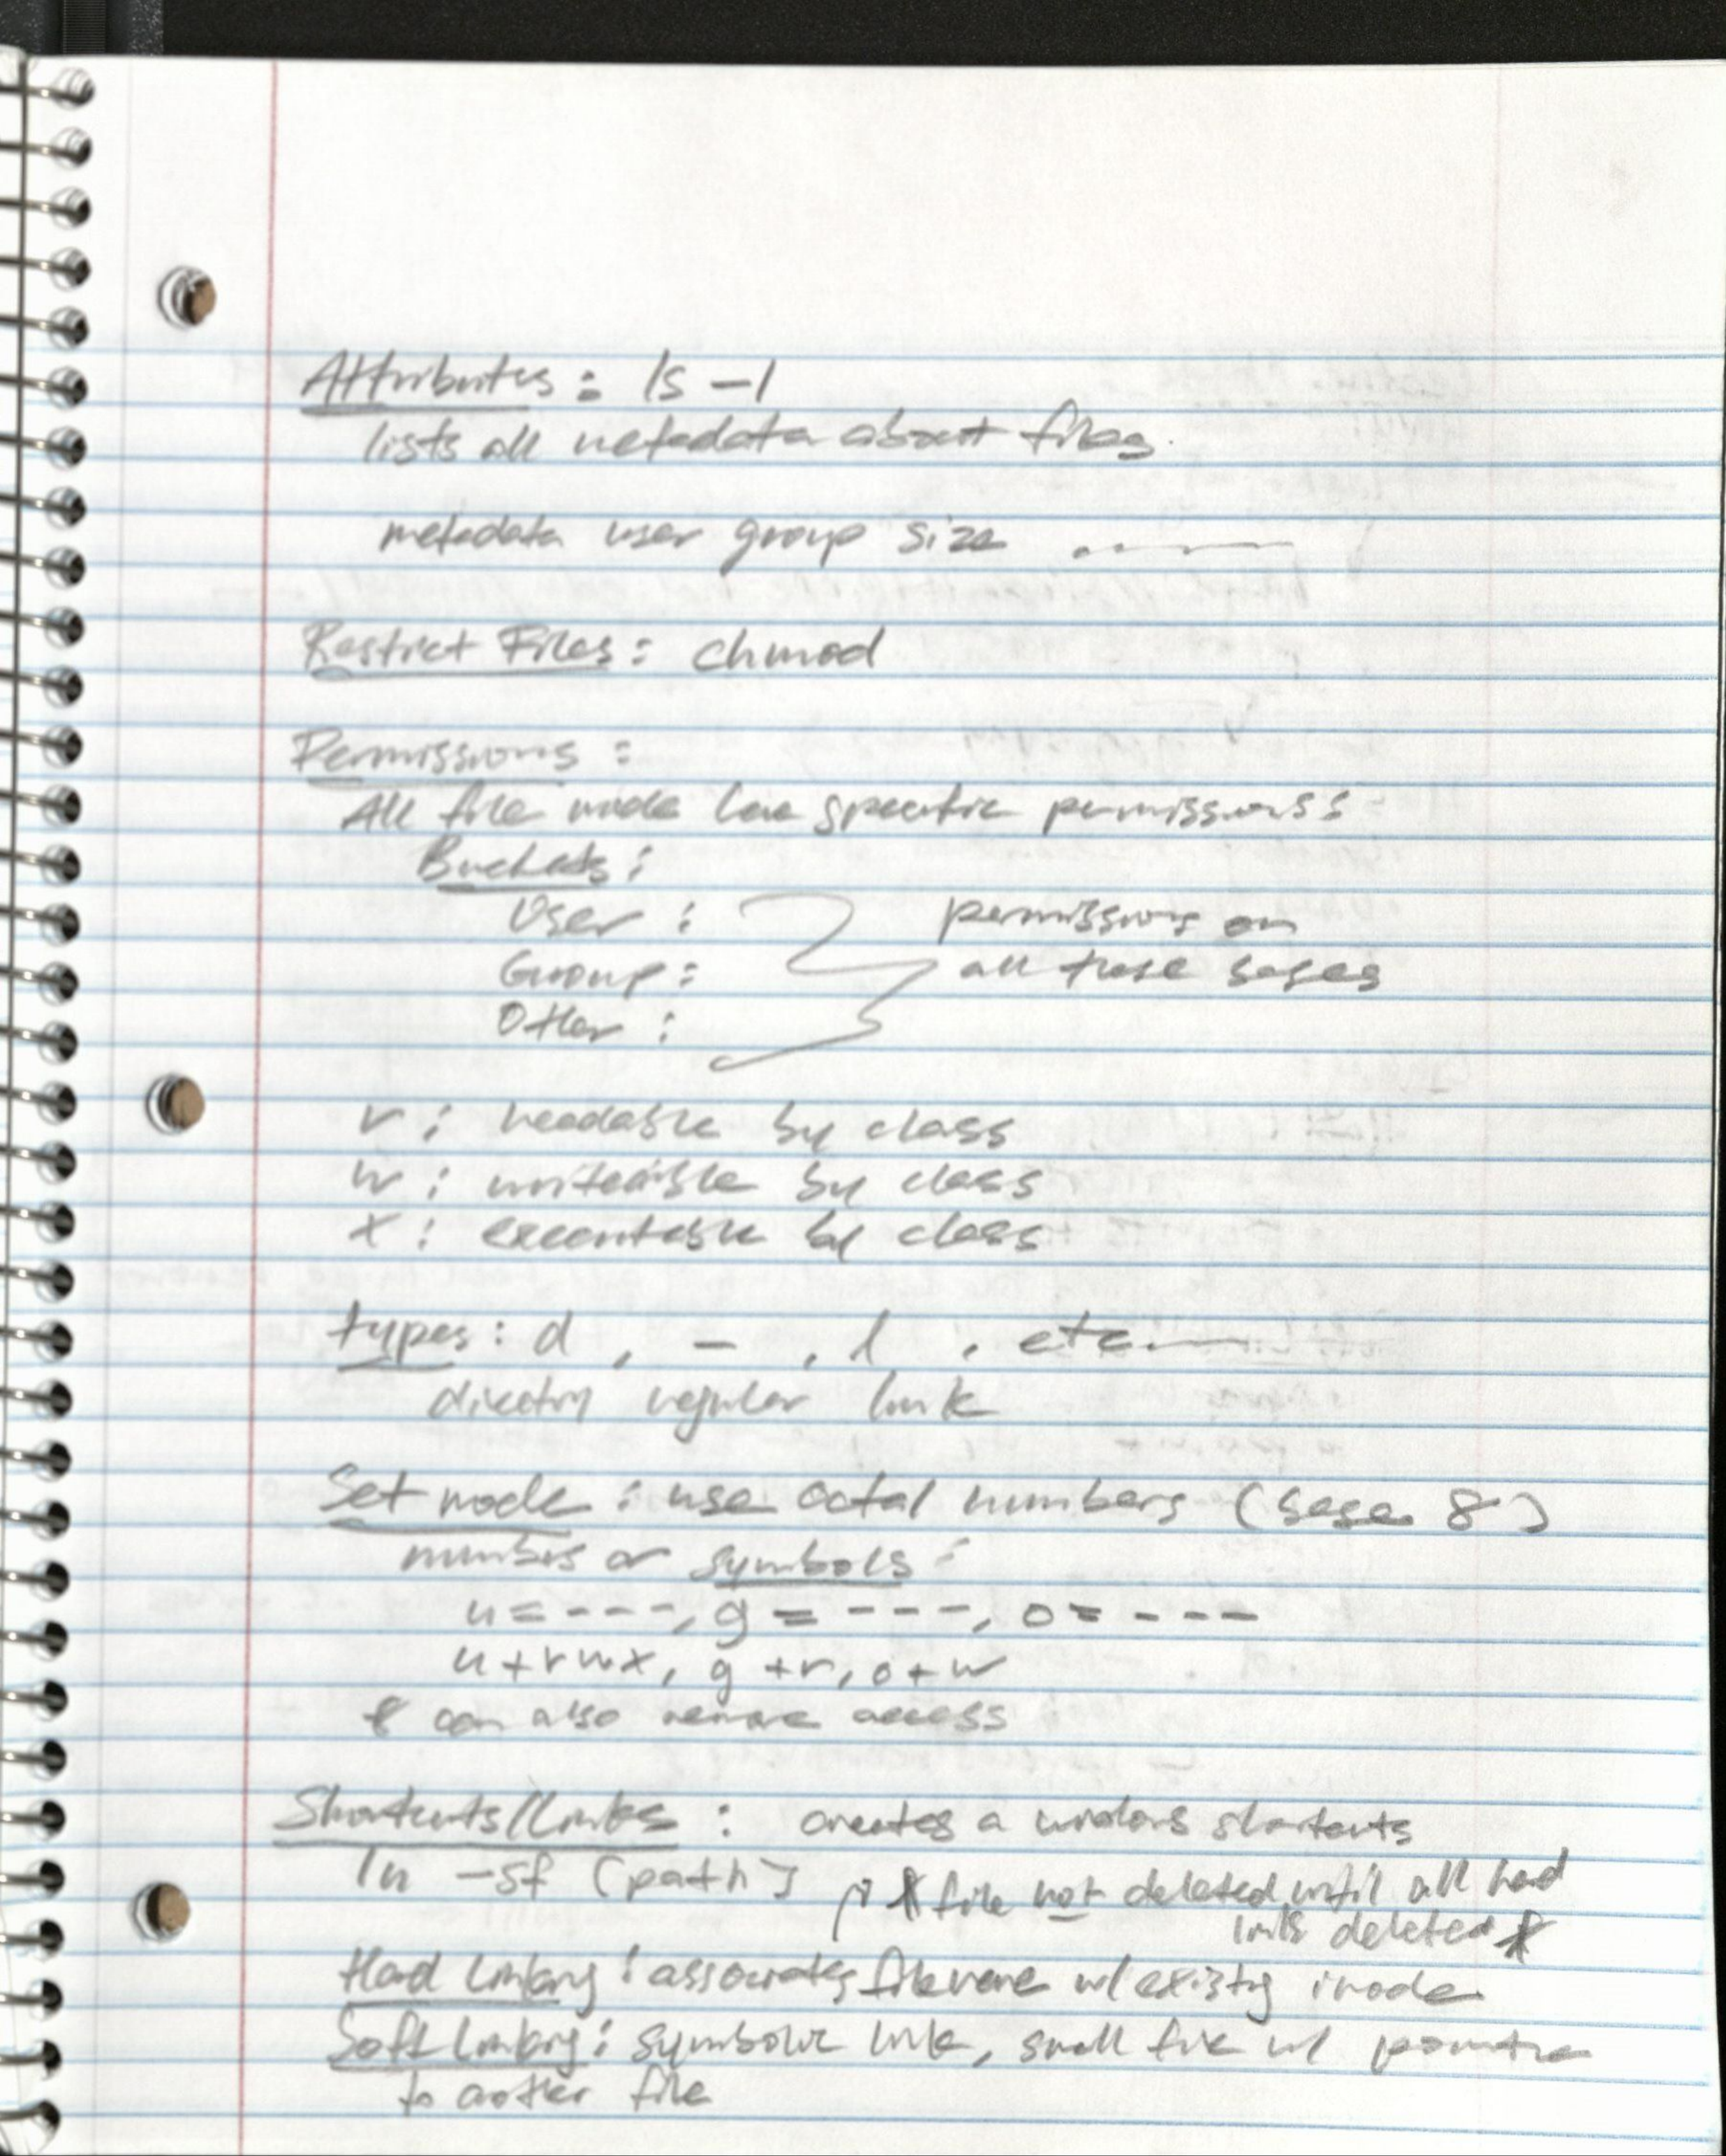 Attributes : ls -l
lists all metadata about files.
metadata user group size
Restrict Files : chmod
Permissions :
All file mode have specific permissions :
Buckets :
User :
permissions on
Group :
all these bases
Other :
r : readable by class
w : writeable by class
x : executable by class
types : d , - , l , etc
directory regular link
Set mode : use octal numbers (base 8)
numbers or symbols :
u = ---, g = ---, o = ---
u +rwx, g +r, o +w
* can also remove access
Shortcuts/Links : creates a windows shortcuts
ln -sf (path)
* file not deleted until all hard
links deleted *
Hard linking : associates filename w/ existing inode
Soft linking : symbolic link, small file w/ pointer
to another file